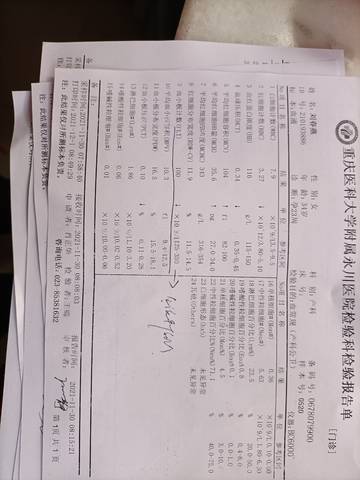 重庆医科大学附属永川医院检验科检验报告单
[门诊]
姓 名: 刘春燕 性 别: 女 科 别: 产科 条 码 号: 0678079900
ID 号: 21093886 年 龄: 31岁 床 号: 样 本 号: 0520
标本: 血液 诊 断: 孕23周 检验目的: 血常规 (产科公卫) 仪器: BC6000
No 项 目 名 称 结 果 单 位 参考区间 No 项 目 名 称 结 果 单 位 参考区间
1 白细胞计数(WBC) 7.9 ×10^9/L 3.5-9.5
2 红细胞计数(RBC) 3.27 ↓ ×10^12/L 3.80-5.10
3 血红蛋白 116 g/L 115-150
4 0.34 ↓ 0.35-0.45
5 平均红细胞体积 104 ↑ fl 82-100
6 35.6 ↑ pg 27.0-34.0
7 平均红细胞HB浓度(MCHC) 343 g/L 316-354
8 红细胞分布宽度(RDW-CV) 11.9 % 11.5-14.5
9 血小板计数(PLT) 100 ↓ ×10^9/L 125-350
10 平均血小板体积(MPV) 10.3 fl 9.4-12.5
11 血小板分布宽度(PDW) 16.3 % 15.5-18.1
12 血小板压积(PCT) 0.10 ↓ % 0.11-0.28
13 淋巴细胞#(Lym#) 1.86 ×10^9/L 1.10-3.20
14 嗜酸性粒细胞#(Eos#) 0.06 ×10^9/L 0.02-0.52
15 嗜碱性粒细胞#(Bas#) 0.01 ×10^9/L 0.00-0.06
16 单核细胞#(Mon#) 0.36 ×10^9/L 0.10-0.60
17 中性粒细胞#(Neu#) 5.63 ×10^9/L 1.80-6.30
18 淋巴细胞百分比(Lym%) 23.5 % 20.0-50.0
19 嗜酸性粒细胞百分比(Eos%) 0.8 % 0.4-8.0
20 嗜碱性粒细胞百分比(Bas%) 0.1 % 0.0-1.0
21 单核细胞百分比(Mon%) 4.5 % 3.0-10.0
22 中性粒细胞百分比(Neu%) 71.1 % 40.0-75.0
23 白细胞形态 未见异常
24 其他(Others) 未见异常
备 注:
采样时间: 2021-11-30 07:58:40 接收时间: 2021-11-30 08:08:03 报告时间: 2021-11-30 08:15:21
打印时间: 2021-12-1 08:49:29 申 请 者: 肖正 检 验 者: 王瑞 审 核 者:
注: 此结果仅对所测标本负责。 咨询电话: 023-85381632 第1页 共1页
备
采样
打印
注: 此